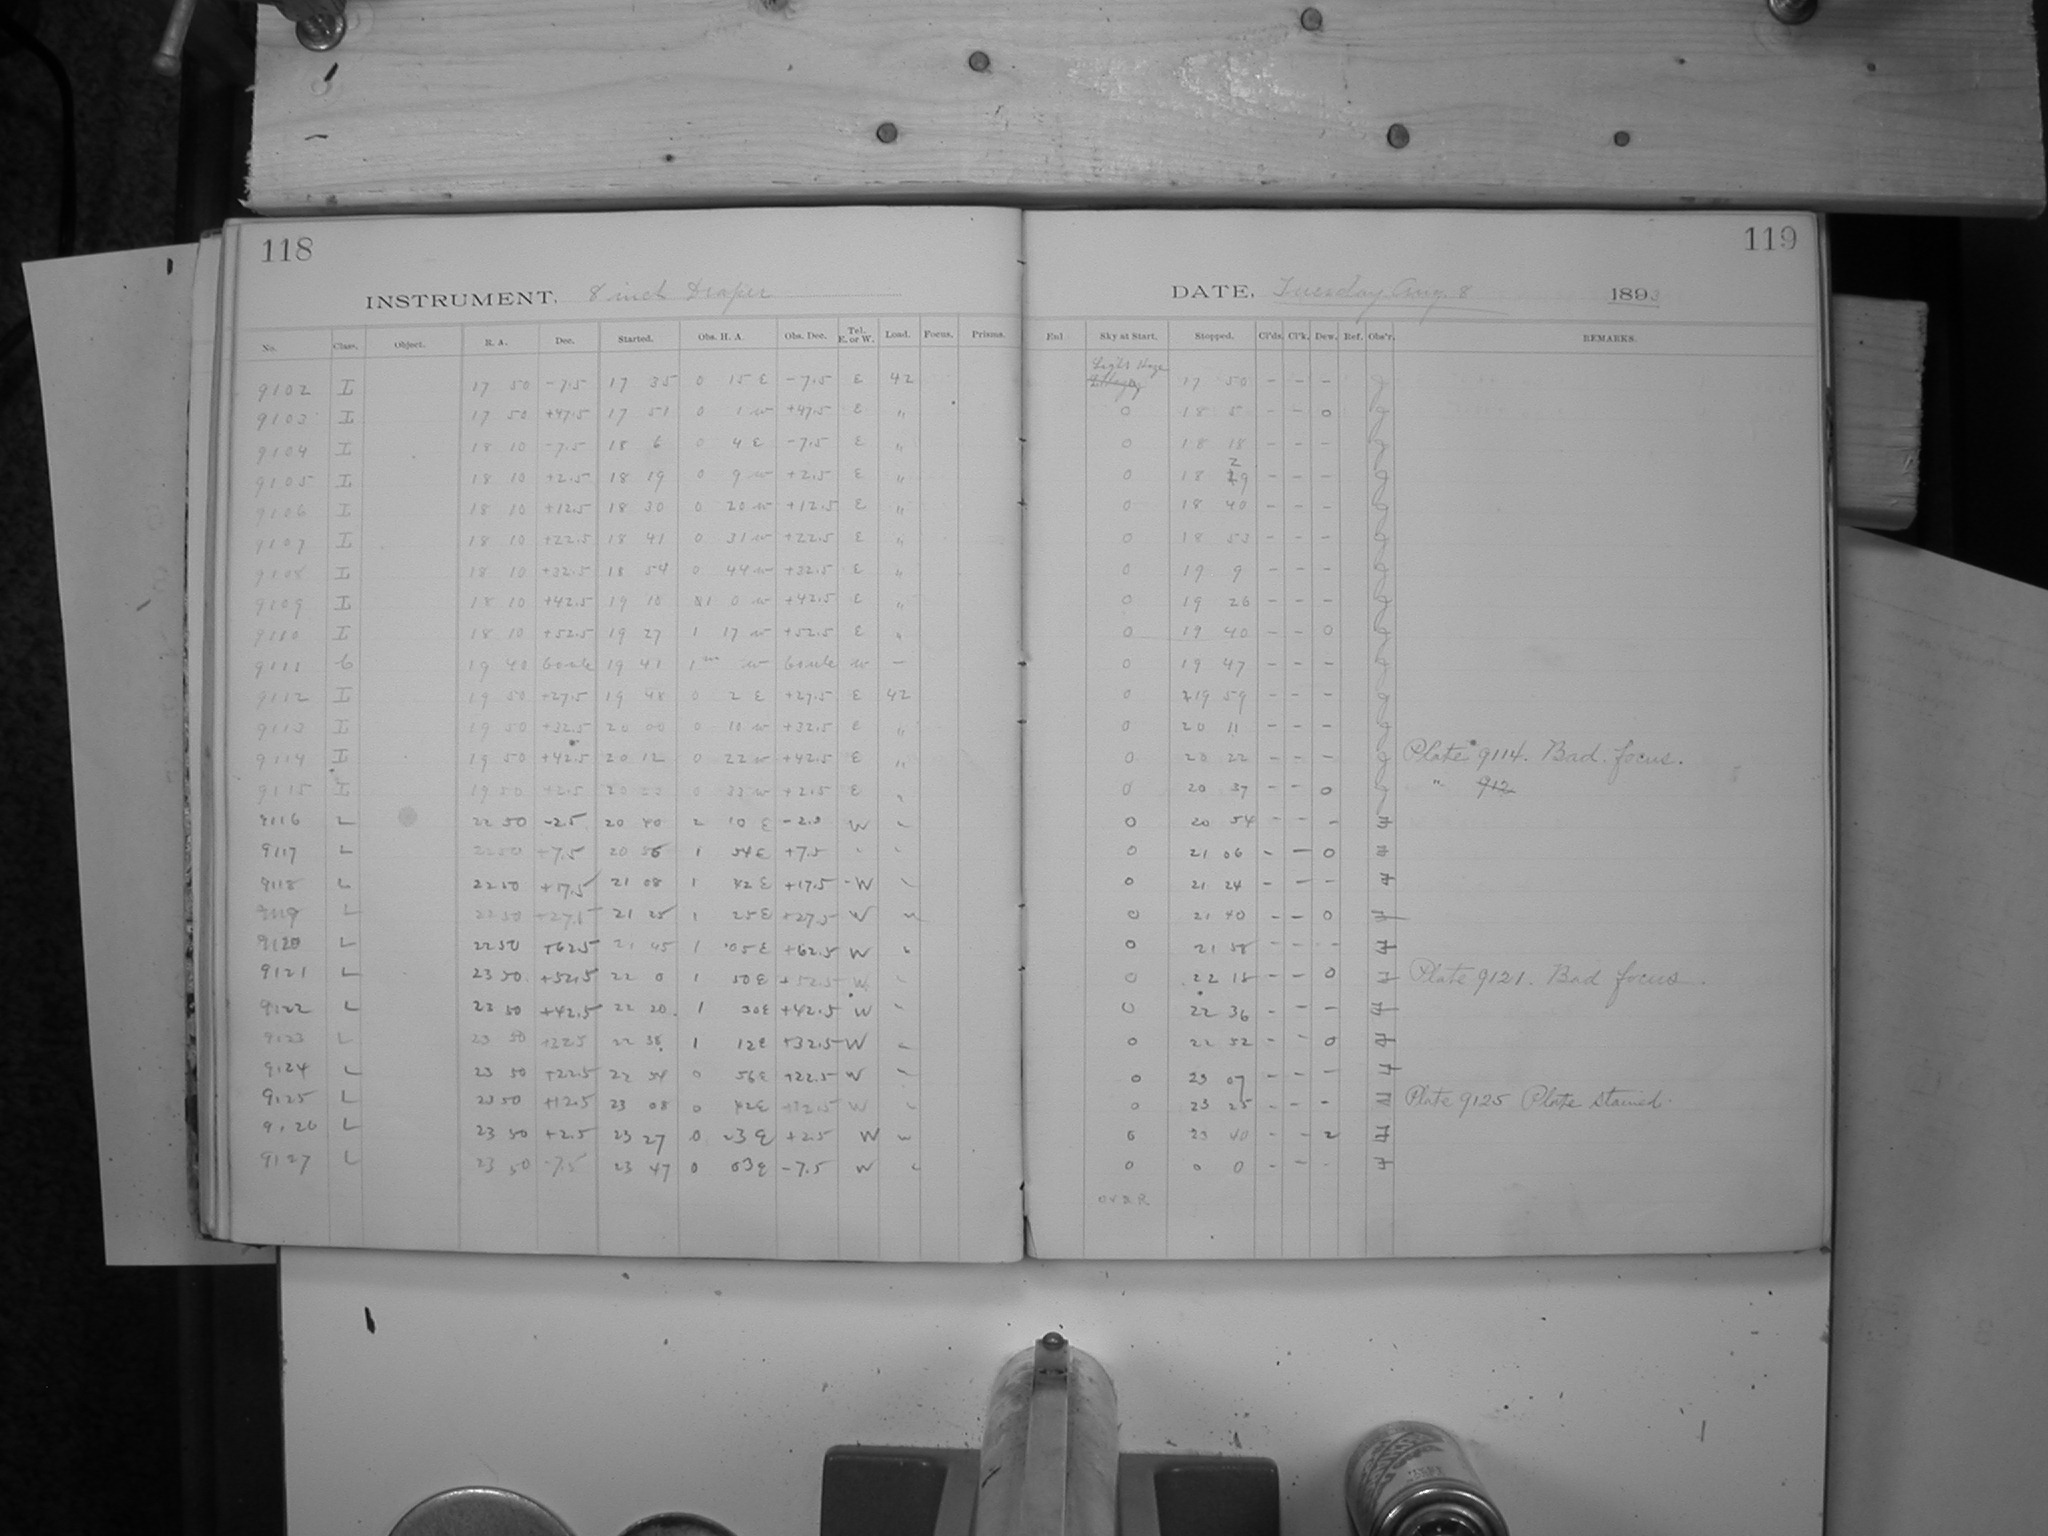 118
INSTRUMENT. 8 inch Draper
No. Class. Object. R. A. Dec. Started. Obs. H. A. Obs. Dec. Tel. E. or W. Load. Focus. Prisms.
9102 L 17 50 -7.5 17 35 0 15 E -7.5 E 42
9103 L 17 50 +47.5 17 51 0 1 w +47.5 E "
9104 L 18 10 -7.5 18 6 0 4 E -7.5 E "
9105 L 18 10 +2.5 18 19 0 9 w +2.5 E "
9106 L 18 10 +12.5 18 30 0 20 w +12.5 E "
9107 L 18 10 +22.5 18 41 0 31 w +22.5 E "
9108 L 18 10 +32.5 18 54 0 44 w +32.5 E "
9109 L 18 10 +42.5 19 10 1 0 w +42.5 E "
9110 L 18 10 +52.5 19 27 1 17 w +52.5 E "
9111 19 40 19 41 1 m w w –
9112 L 19 50 +27.5 19 48 0 2 E +27.5 E 42
9113 L 19 50 +32.5 20 00 0 10 w +32.5 E "
9114 L 19 50 +42.5 20 12 0 22 w +42.5 E "
9115 L 19 50 +2.5 20 0 33 w +2.5 E "
9116 L 22 50 -2.5 20 40 2 10 E -2.5 W "
9117 L 22 50 +7.5 20 56 1 54 E +7.5 " "
9118 L 22 50 +17.5 21 08 1 42 E +17.5 W "
9119 L 22 50 +27.5 21 25 1 25 E +27.5 W "
9120 L 22 50 +62.5 21 45 1 05 E +62.5 W "
9121 L 23 50 +52.5 22 0 1 50 E +52.5 W "
9122 L 23 50 +42.5 22 20 1 30 E +42.5 W "
9123 L 23 50 +32.5 22 38 1 12 E +32.5 W "
9124 L 23 50 +22.5 22 54 0 56 E +22.5 W "
9125 L 23 50 +12.5 23 08 0 42 E +12.5 W "
9126 L 23 50 +2.5 23 27 0 23 E +2.5 W "
9127 L 23 50 -7.5 23 47 0 03 E -7.5 W "
119
DATE, Tuesday Aug. 8 1893
Enl Sky at Start. Stopped. Cl'ds. Cl'k. Dew. Ref. Obs'r. REMARKS.
Light Haze
17 50 – – – J
0 18 5 – – 0 J
0 18 18 – – – J
0 18 29 – – – J
0 18 40 – – – J
0 18 53 – – – J
0 19 9 – – – J
0 19 26 – – – J
0 19 40 – – 0 J
0 19 47 – – – J
0 19 59 – – – J
0 20 11 – – – J
0 20 22 – – – J Plate 9114. Bad focus.
0 20 37 – – 0 J " 912
0 20 54 – – –
0 21 06 – – 0
0 21 24 – – –
0 21 40 – – 0
0 21 58 – – –
0 22 18 – – 0 Plate 9121. Bad focus.
0 22 36 – – –
0 22 52 – – 0
0 23 07 – – –
0 23 25 – – – Plate 9125 Plate stained.
0 23 40 – – 2
0 0 0 – – –
OVER